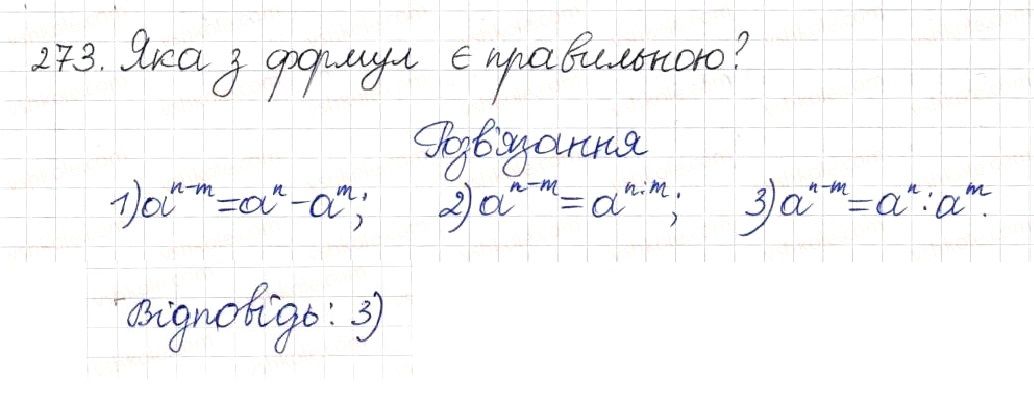 273. Яка з формул є правильною?
Розв'язання
1) aⁿ⁻ᵐ = aⁿ - aᵐ; 2) aⁿ⁻ᵐ = aⁿ:ᵐ; 3) aⁿ⁻ᵐ = aⁿ : aᵐ.
Відповідь: 3)